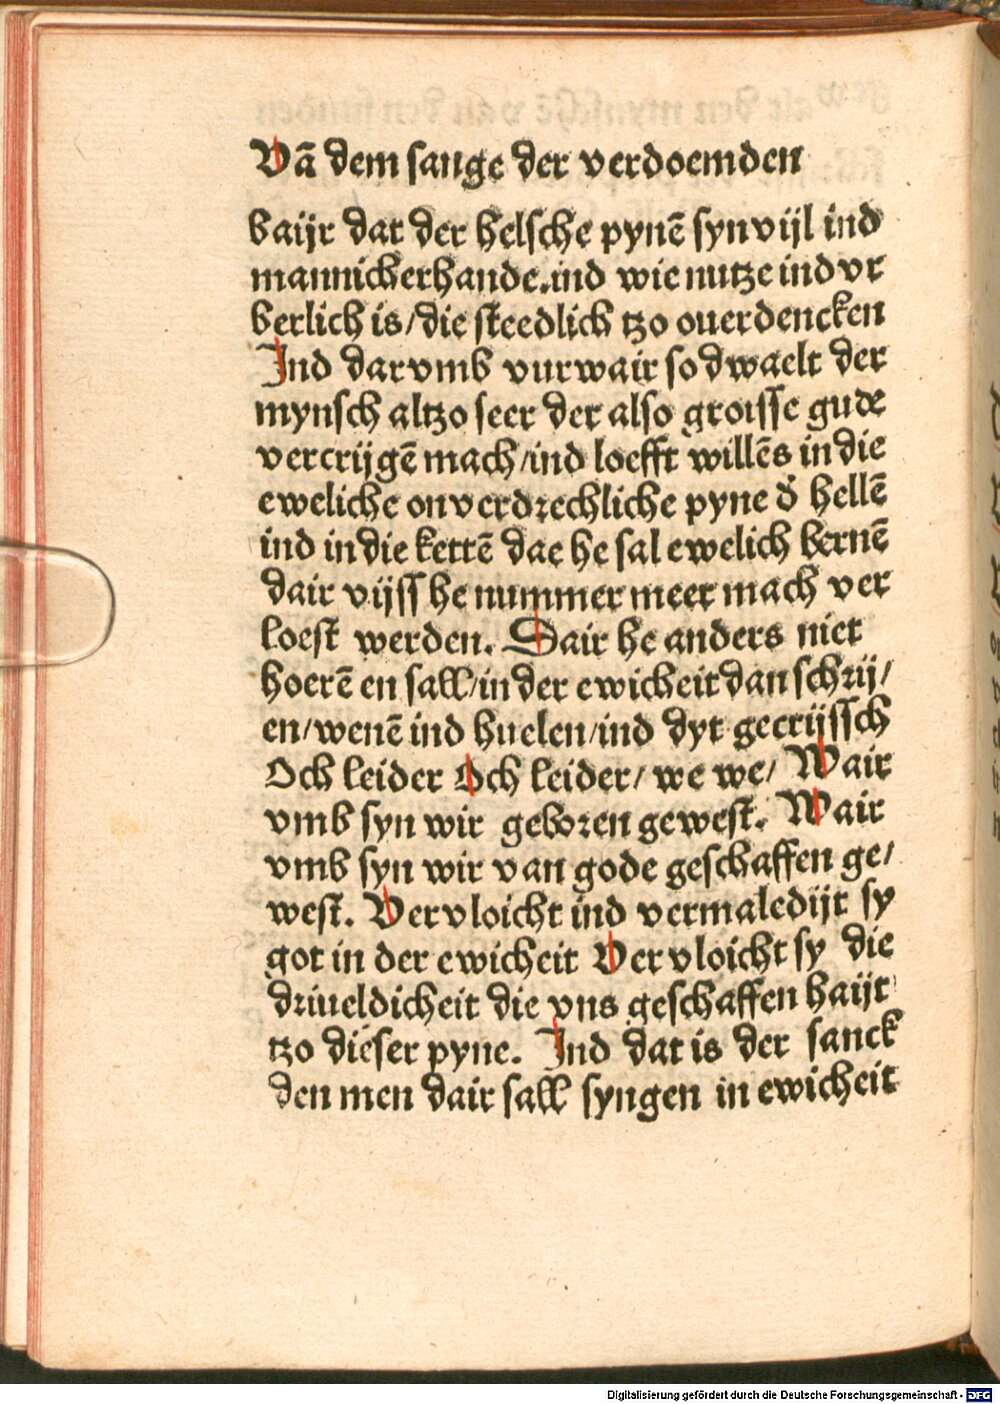 Vā dem sange der verdoemden
baijr dat der helsche pynē syn vijl ind
mannicherhande.ind wie nutze ind vr
berlich is/die steedlich tzo ouerdencken
Ind darvmb vurwair so dwaelt der
mynsch altzo seer der also groisse gude
vercrijgē mach/ind loefft willēs in die
eweliche onverdrechliche pyne d̄ hellē
ind in die kettē dae he sal ewelich bernē
dair vijss he nummer meer mach ver
loest werden. Dair he anders niet
hoerē en sall/in der ewicheit dan schrij/
en/wenē ind huelen/ind dyt gecrijssch
Och leider Och leider/ we we/ Wair
vmb syn wir geboren gewest. Wair
vmb syn wir van gode geschaffen ge/
west. Vervloicht ind vermaledijt sy
got in der ewicheit Vervloicht sy die
driueldicheit die vns geschaffen haijt
tzo dieser pyne. Ind dat is der sanck
den men dair sall syngen in ewicheit
Digitalisierung gefördert durch die Deutsche Forschungsgemeinschaft - DFG